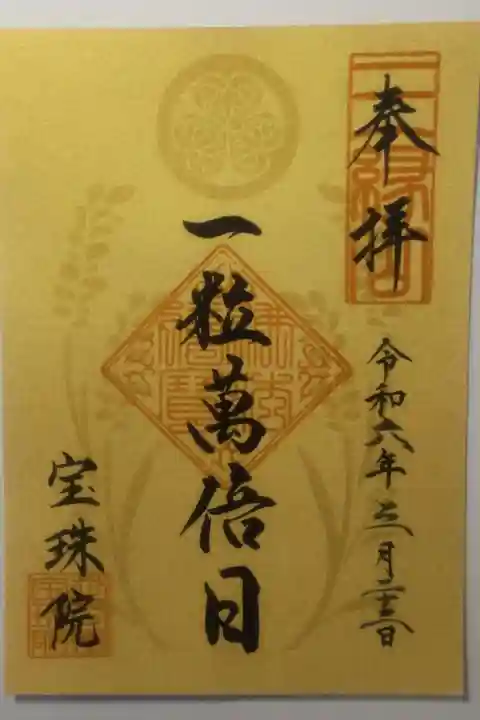 三縁山
奉拝
令和六年
月
日
一粒萬倍日
宝珠院